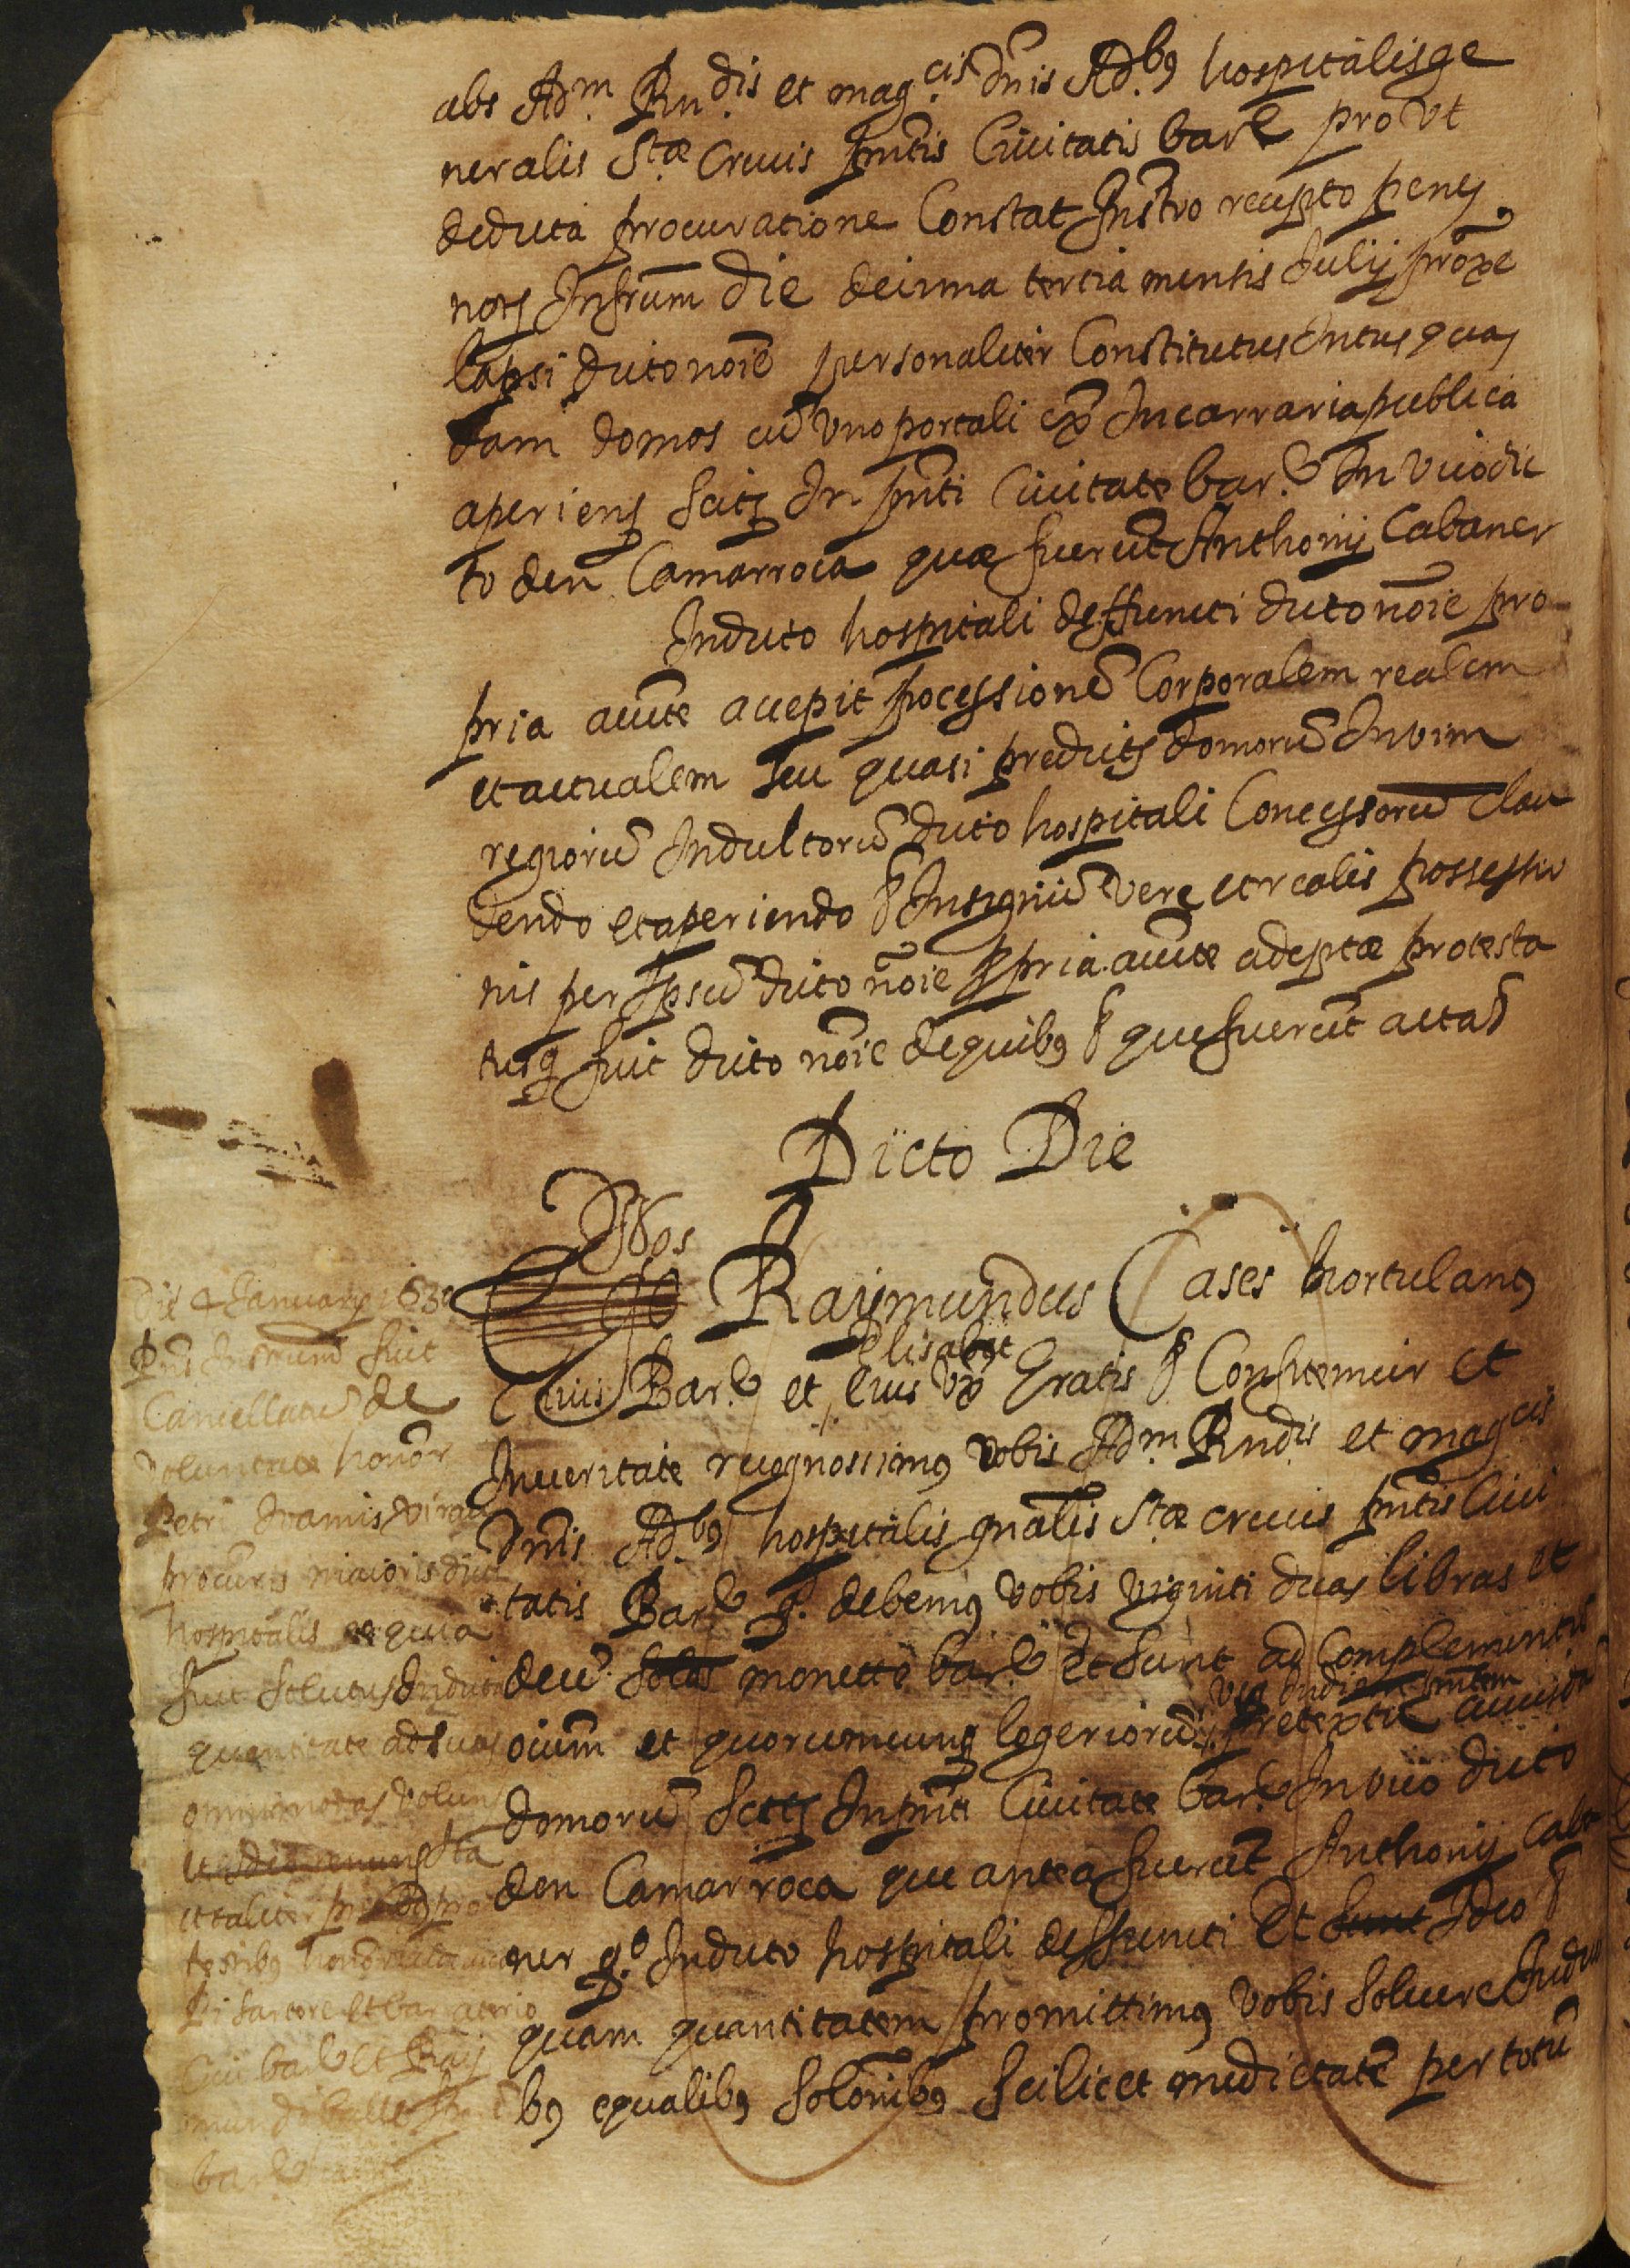 abs Adm. Rndis. et magcis. dnis Adbꝰ. hospitalis ge
neralis Stæ Crucis pntis Ciuitatis barẽ pro vt
de dicta procuratione Constat Instro recepto penes
nots Infrum die decima tercia mensis Julij prõxe
lapsi dicto noie personaliter Constitutus Intus quas
dam domos cũ vno portali Ex In carraria publica
aperiens scits In pnti Ciuitate bar. In vico dic
to den Camarroca quæ fuerũt Anthonij Cabaner
In dicto hospitali deffuncti dicto noie pro
pria aucte accepit pocessionẽ Corporalem realem
et actualem seu quasi predicts domorũ In vim
regiorũ Indultorũ dicto hospitali Concessorũ clau
dendo et aperiendo & In signũ vere et realis possessio
nis per Ipsũ dicto noie ppria aucte adeptæ protesta
tusq fuit dicto noie de quibꝰ & que fuerũt acta &
Dicto Die
Nos
Raymundus Cases hortulanꝰ
Elisabet
Ciuis Bar. et eius vx Gratis & Confitemur et
In veritate recognossimꝰ vobis Adm. Rndis. et magcis
Dnis Adbꝰ. hospitalis gnalis Stæ crucis pntis Ciui
tatis Bar. q. debemꝰ vobis viginti duas libras et
decẽ solos monette bar. Et sunt ad Complementũ
vsq In diem pntem
oium et quorumcunq logeriorũ pretextu
domorũ scits In pnti Ciuitate bar. In vico dicto
den Camarroca que antea fuerũt Anthonij Caba
ner qº. In dicto hospitali deffuncti Et sunt Ideo &
quam quantitatem promittimꝰ vobis soluere
bꝰ equalibꝰ solonibꝰ scilicet medietatẽ per totũ
Die 4 Januarij 163
Pns Instrum fuit
Cancellatũ de
voluntate honor
Petri Joannis
procuris maioris dicti
hospitalis ex quia
fuit solutus In dicta
quantitate ad suas
omnimodas volun
et Ideo renuns ta
et taliter
testibꝰ
Pi sartore et bar
Ciui bar et Ray
mundo
bar